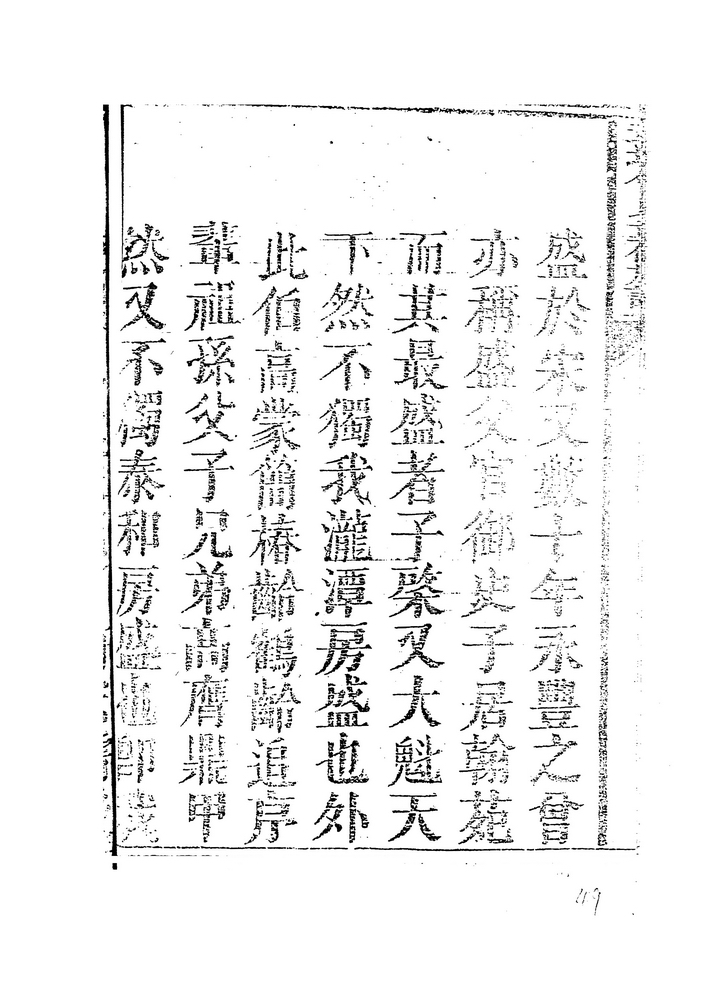 盛於宋又數十年永豐之曾
亦稱盛父官御史子居翰苑
而其最盛者子棨又大魁天
下然不獨我瀧潭房盛也外
此伯高蒙簡椿齡鶴齡追序
輩祖孫父子兄弟高膺鼎甲
然又不獨泰和房盛也即
49